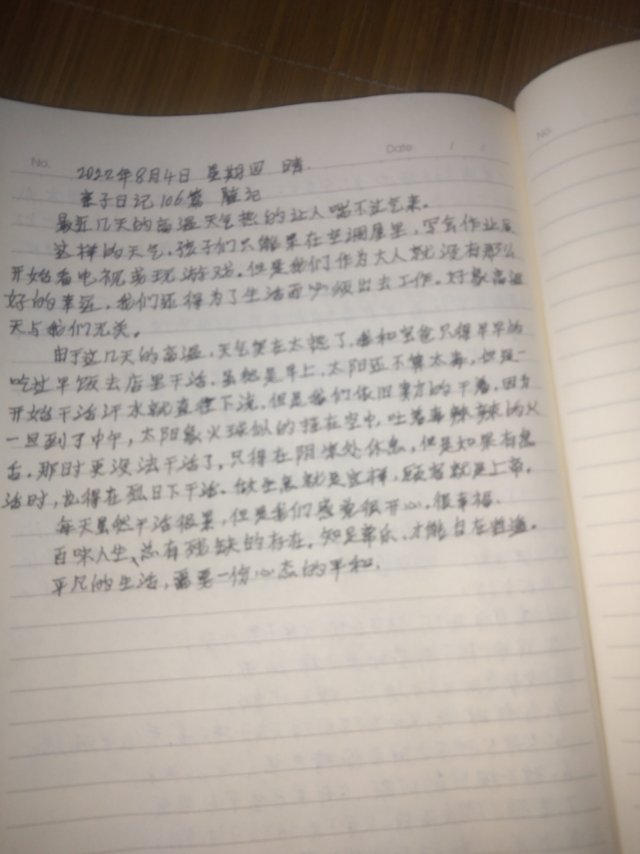 No.
Date / /
No.
2022年8月4日 星期四 晴
亲子日记106篇 随记
最近几天的高温天气热的让人喘不过气来。
这样的天气,孩子们只能呆在空调屋里,写完作业后
开始看电视或玩游戏。但是我们作为大人就没有那么
好的幸运,我们还得为了生活而必须出去工作。好象高温
天与我们无关。
由于这几天的高温,天气实在太热了,我和宝爸只得早早的
吃过早饭去店里干活。虽然是早上,太阳还不算太毒,但是一
开始干活汗水就直往下流,但是我们依旧卖力的干着,因为
一旦到了中午,太阳象火球似的挂在空中,吐着毒辣辣的火
舌,那时更没法干活了,只得在阴凉处休息,但是如果有急
活时,也得在烈日下干活。做生意就是这样,顾客就是上帝。
每天虽然干活很累,但是我们感觉很开心,很幸福。
百味人生、总有残缺的存在,知足常乐,才能自在逍遥。
平凡的生活,需要一份心态的平和。